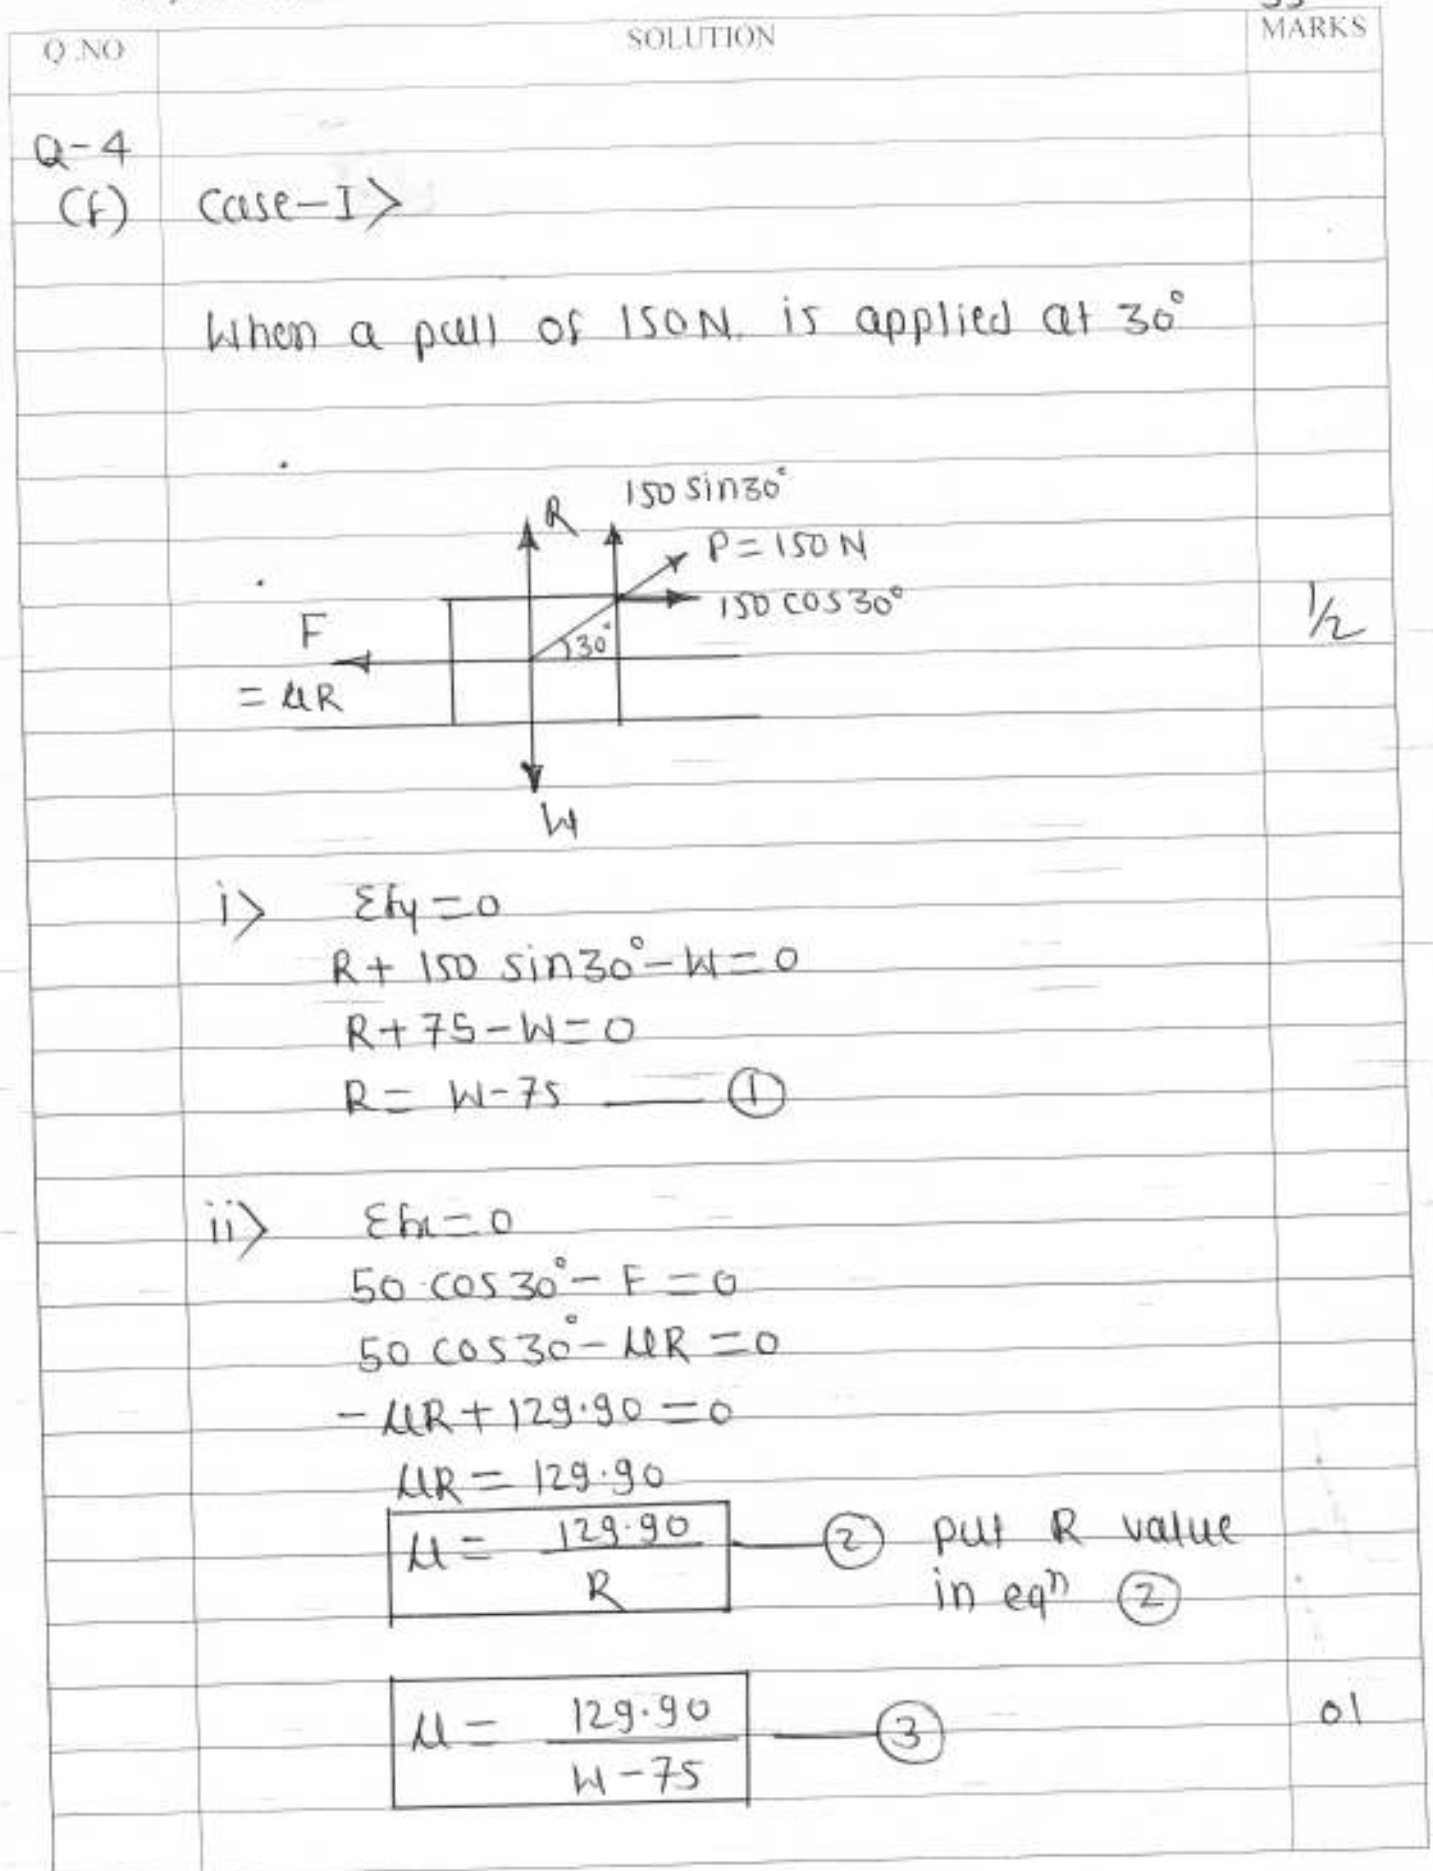 Q.NO SOLUTION MARKS
Q-4
(f) Case-I>
When a pull of 150N. is applied at 30°
150 sin30°
R
P=150N
150 cos30°
F
30°
= μR
1/2
W
i> Σfy=0
R+ 150 sin30°-W=0
R+75-W=0
R= W-75 ①
ii> Σfx=0
50 cos30°- F=0
50 cos30°- μR=0
-μR+129.90=0
μR=129.90
μ= 129.90/R ② put R value
in eqn ②
μ= 129.90/W-75 ③ 01